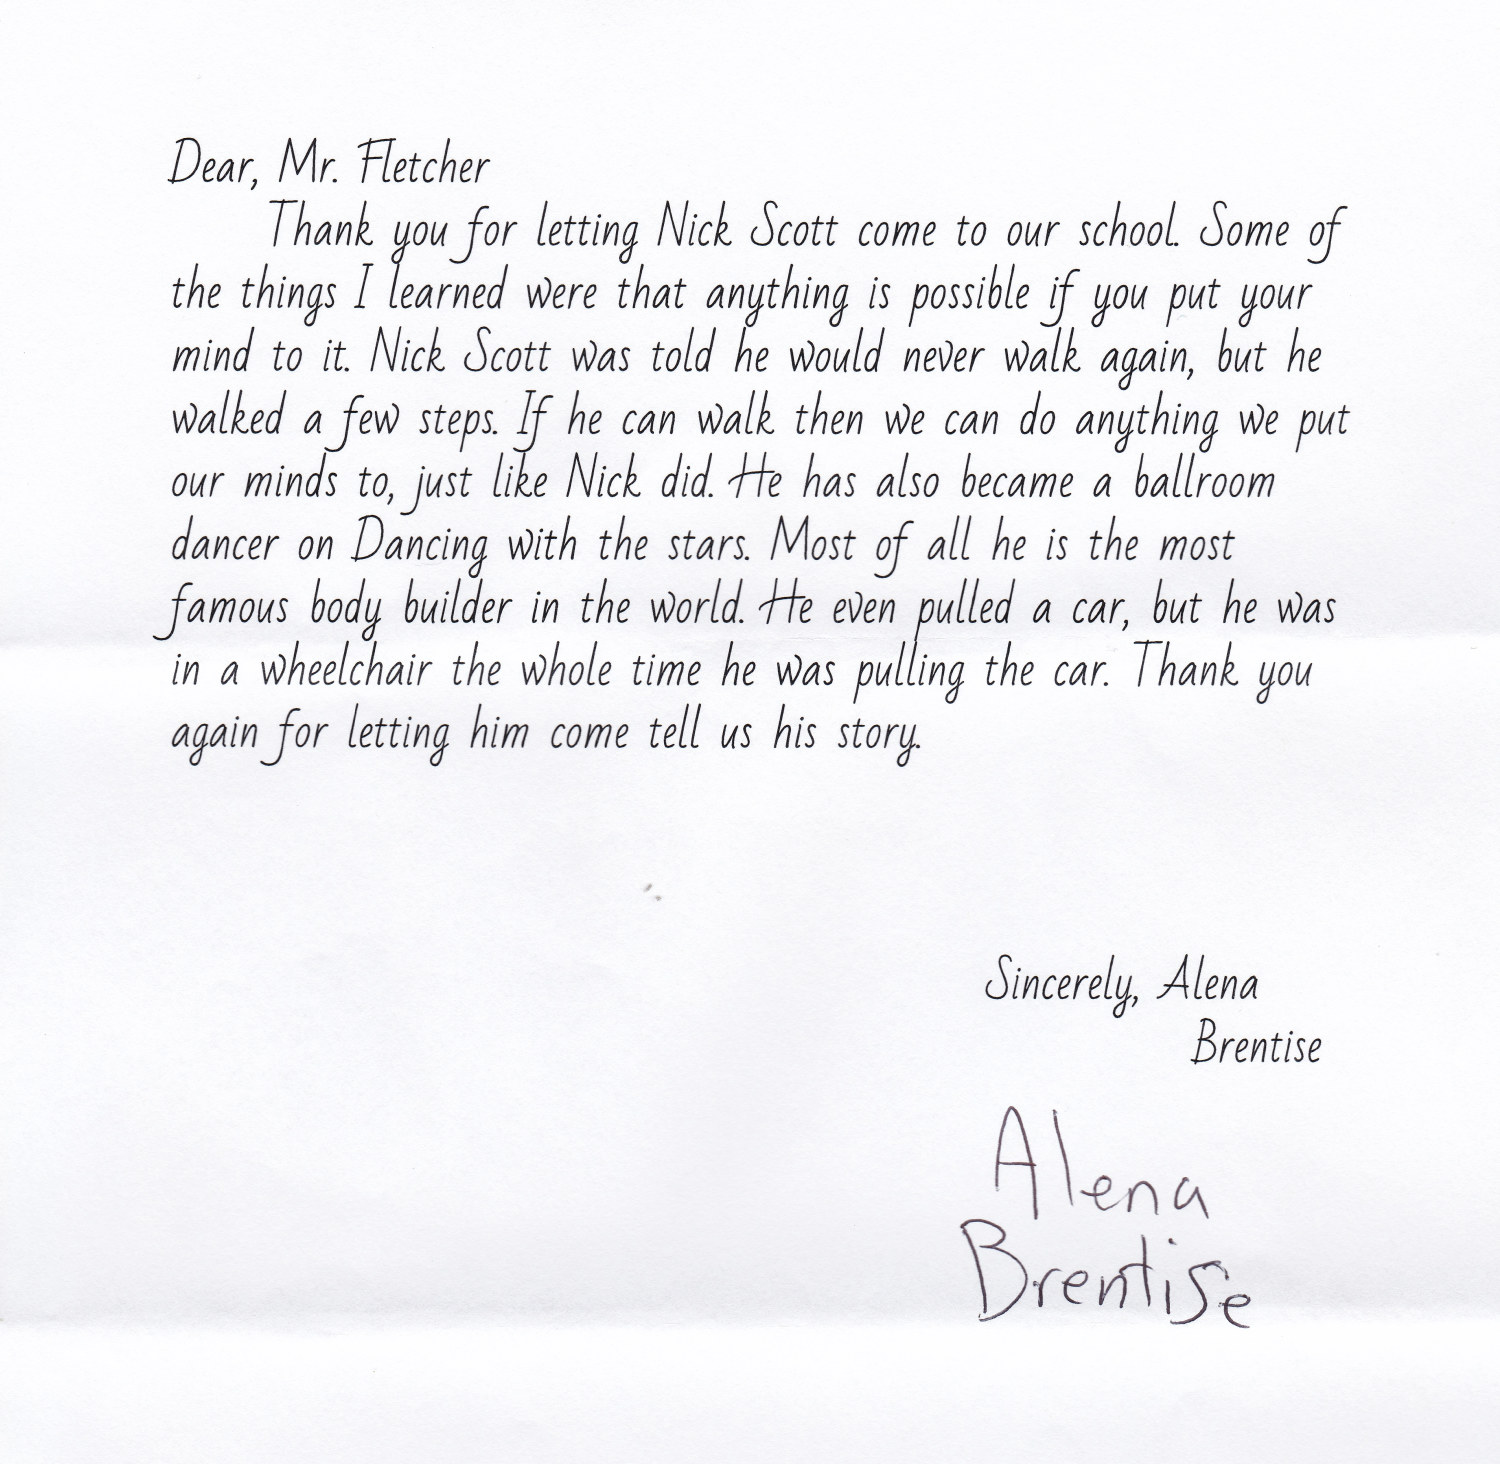 Dear, Mr. Fletcher
Thank you for letting Nick Scott come to our school. Some of
the things I learned were that anything is possible if you put your
mind to it. Nick Scott was told he would never walk again, but he
walked a few steps. If he can walk then we can do anything we put
our minds to, just like Nick did. He has also became a ballroom
dancer on Dancing with the stars. Most of all he is the most
famous body builder in the world. He even pulled a car, but he was
in a wheelchair the whole time he was pulling the car. Thank you
again for letting him come tell us his story.
Sincerely, Alena
Brentise
Alena
Brentise